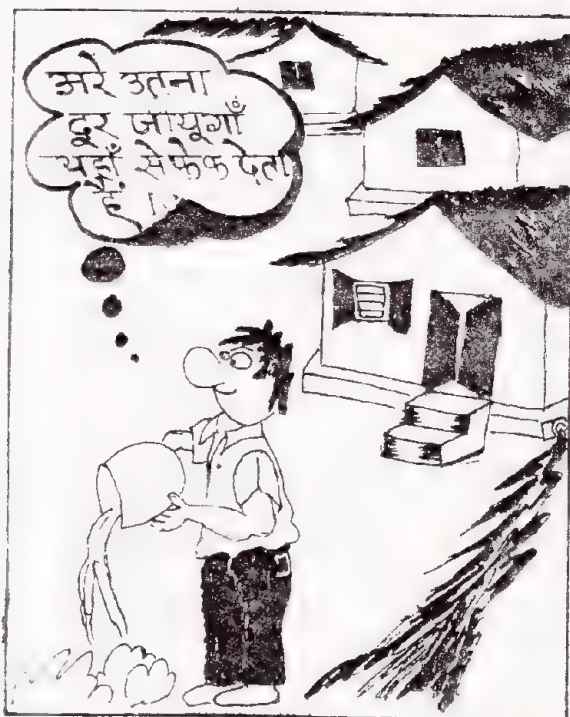 अरे उतना
दूर जायूगाँ
यहाँ से फेक देता
हूँ ।